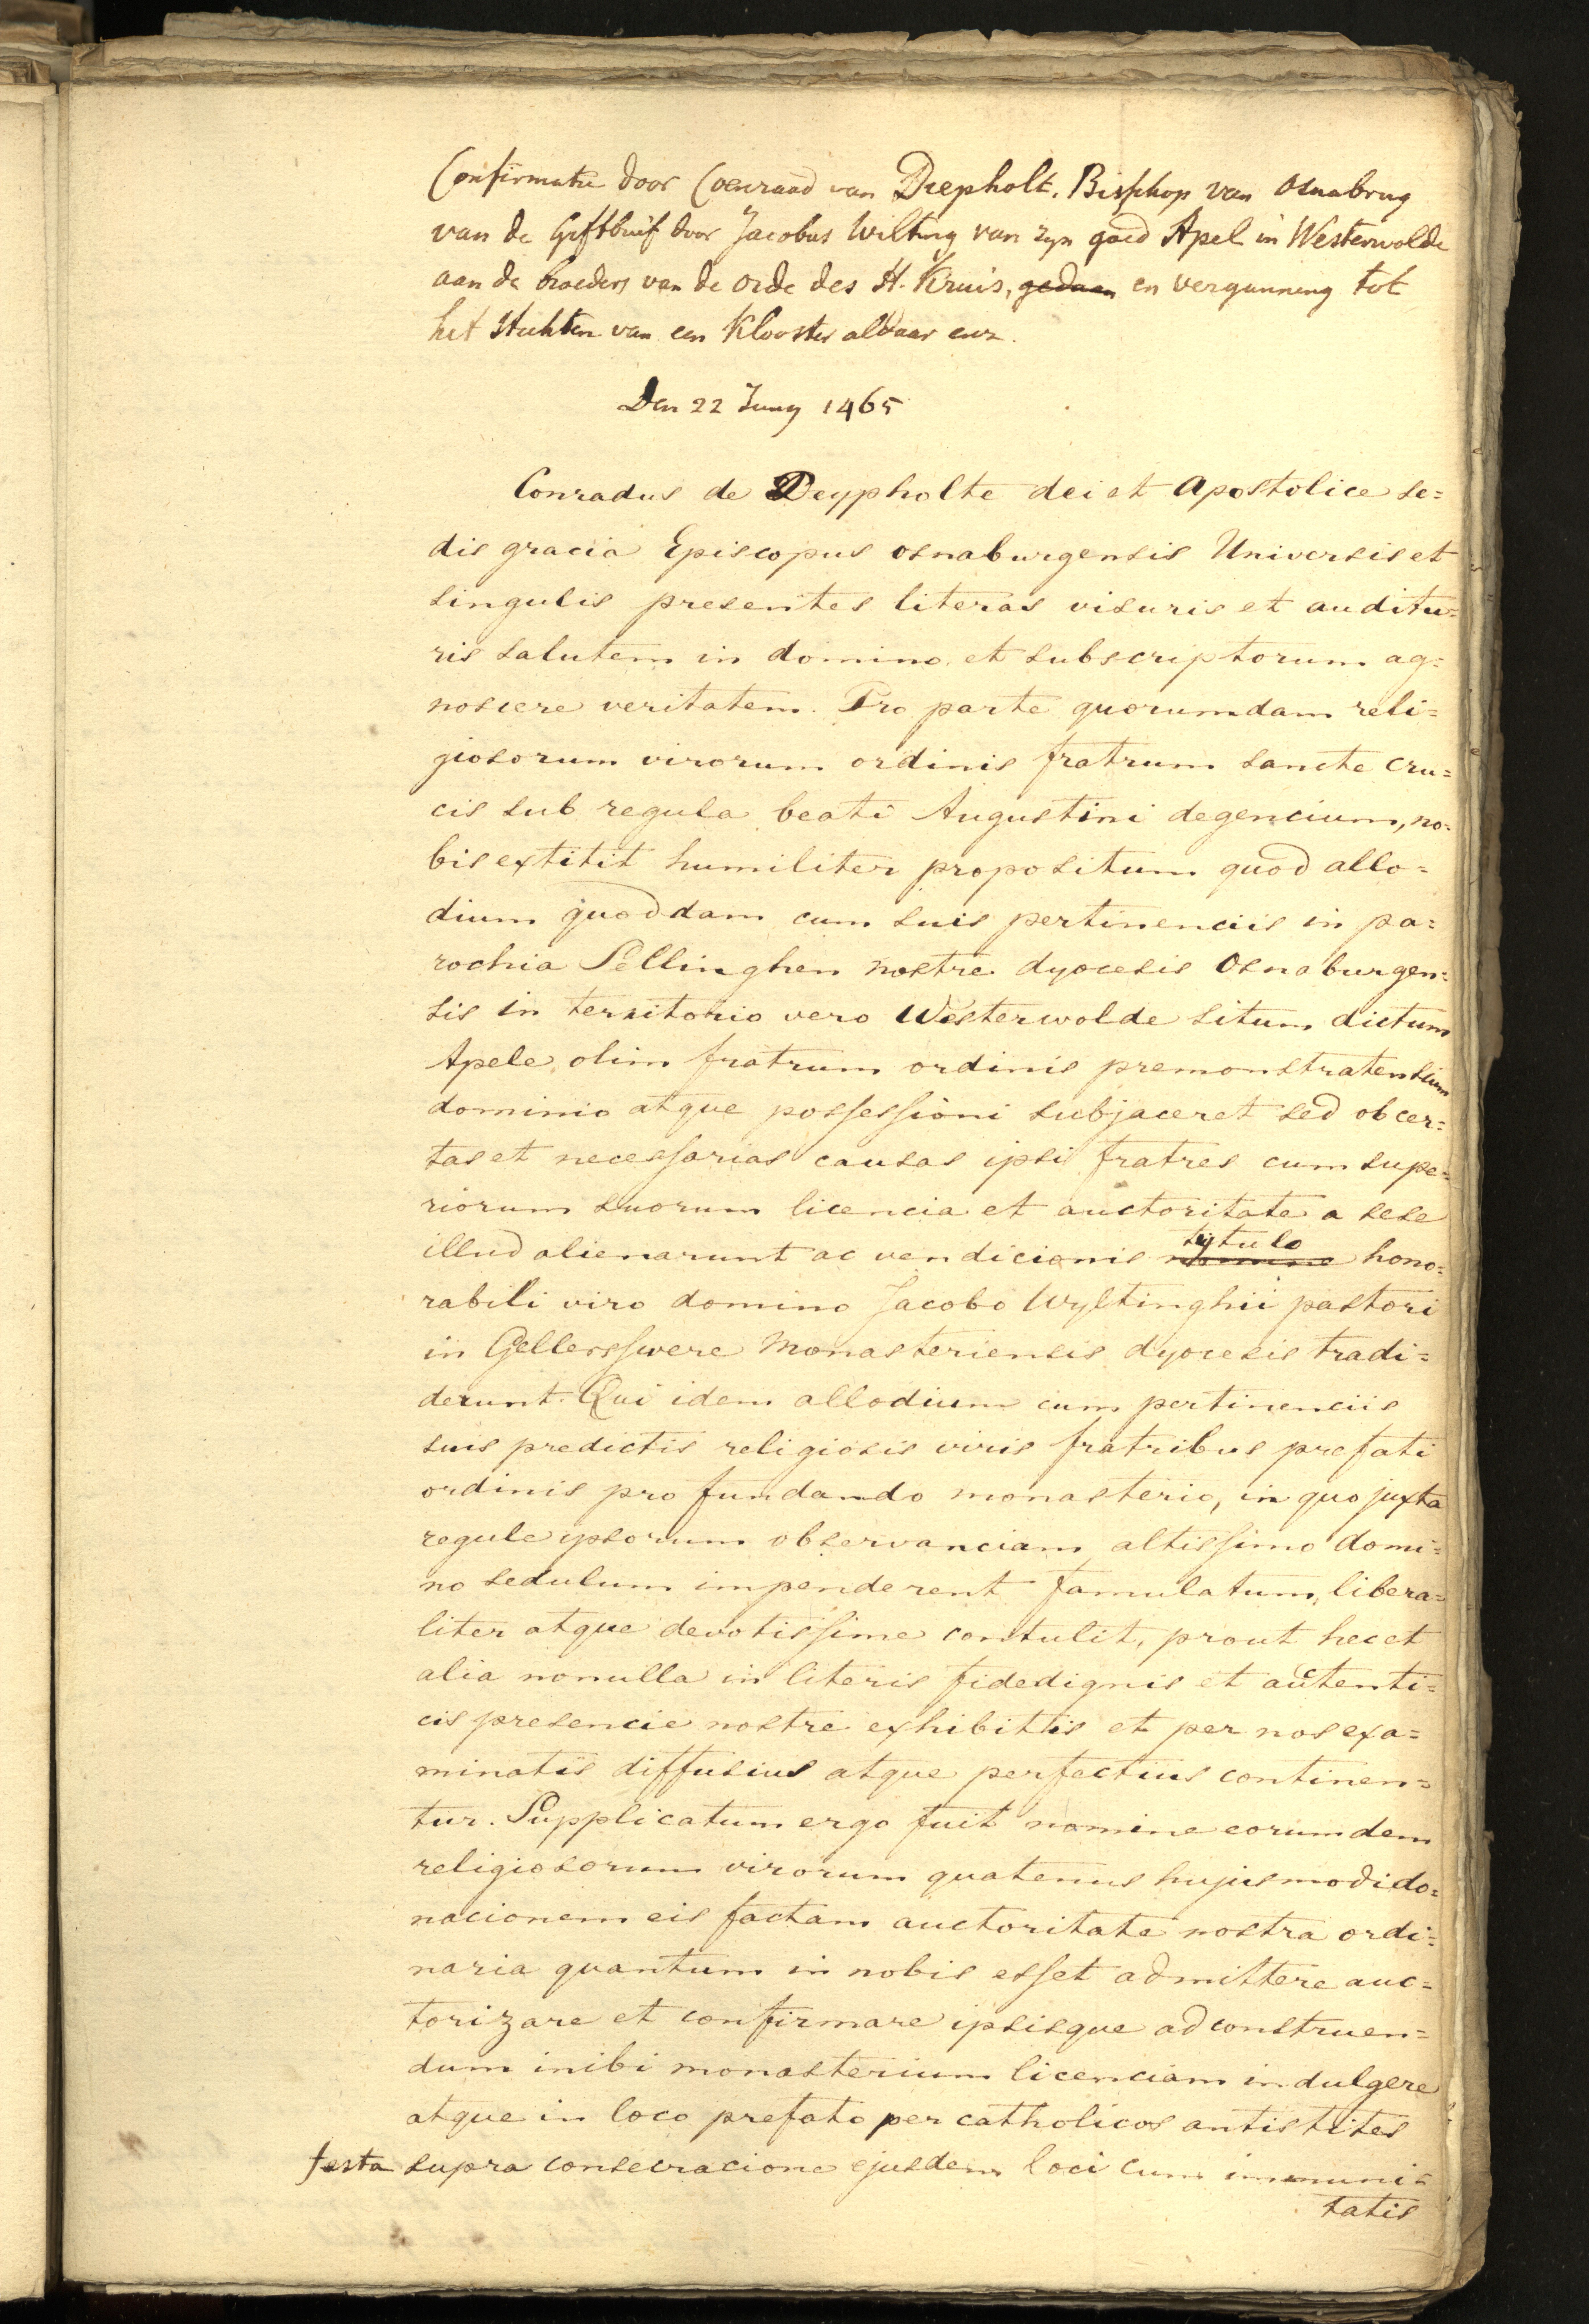 Confirmatie door Coenraad van Diepholt. Bisschop van Osnabrug
van de Giftbrief door Jacobus Wilting van zyn goed Apel in Westerwolde
aan de broeders van de orde des H. Kruis, gedaan en vergunning tot
het stichten van een Klooster aldaar enz.
Den 22 Juny 1465
Conradus de Deypholte dei et Apostolice se=
dis gracia Episcopus osnaburgensis Universis et
singulis presentes literas visuris et auditu=
ris salutem in domino et subscriptorum ag=
noscere veritatem. Pro parte quorumdam reli=
giosorum virorum ordinis fratrum sancte cru=
cis sub regula beati Augustini degencium, no=
bis extitit humiliter propositum quod allo=
dium quoddam cum suis pertinenciis in pa=
rochia Sellinghen nostre dyocesis Osnaburgen=
sis in territorio vero Westerwolde situm dictum
Apele olim fratrum ordinis premonstratensium
dominio atque possessioni subjaceret sed ob cer=
tas et necessarias causas ipsi fratres cum supe=
riorum suorum licencia et auctoritate a sese
illud alienarunt ac vendicionis nomine tytulo hono=
rabili viro domino Jacobo Wyltinghii pastori
in Gellersswere Monasteriensis dyocesis tradi=
derunt. Qui idem allodium cum pertinenciis
suis predictis religiosis viris fratribus prefati
ordinis pro fundando monasterio, in quo juxta
regule ipsorum observanciam altissimo domi=
no sedulum impenderent famulatum, libera=
liter atque devotissime contulit, prout hec et
alia nonulla in literis fidedignis et auctenti=
cis presencie nostre exhibittis et per nos exa=
minatis diffusius atque perfectius continen=
tur. Supplicatum ergo fuit nomine eorumdem
religiosorum virorum quatenus hujusmodi do=
nacionem eis factam auctoritate nostra ordi=
naria quantum in nobis esset admittere auc=
torizare et confirmare ipsisque ad construen=
dum inibi monasterium licenciam indulgere
atque in loco prefato per catholicos antistites
festa supra consecracione ejusdem loci cum immuni=
tatis